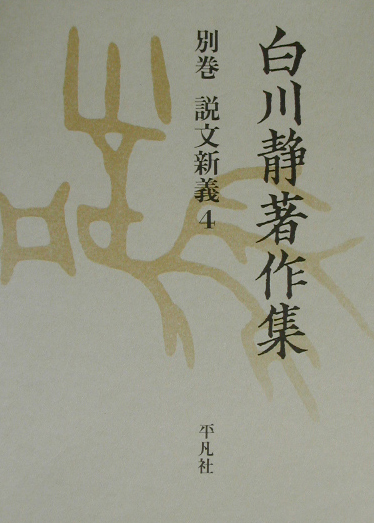 白川静著作集
別巻 説文新義4
平凡社